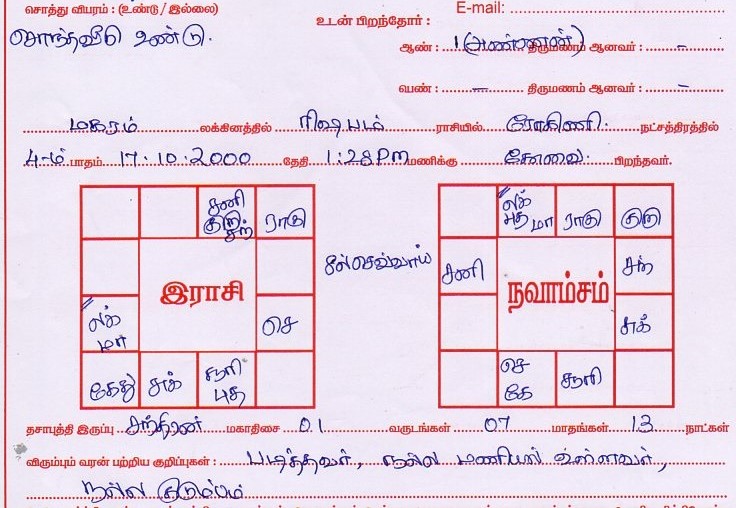 சொத்து விபரம் : (உண்டு / இல்லை)
சொந்தவீடு உண்டு.
E-mail:
உடன் பிறந்தோர் :
ஆண் : 1 (அண்ணன்) திருமணம் ஆனவர் : -
பெண் : - திருமணம் ஆனவர் : -
மகரம் லக்கினத்தில் ரிஷபம் ராசியில் ரோகிணி நட்சத்திரத்தில்
4-ம் பாதம் 17.10.2000 தேதி 1:28 PM மணிக்கு கோவை பிறந்தவர்.
சனி
குரு
சந்
ராகு
இராசி
லக்
மா
செ
கேது
சுக்
சூரி
புத
செவ்வாய்
லக்
புத மா
ராகு
குரு
சனி
நவாம்சம்
சந்
சுக்
செ
கே
சூரி
தசாபுத்தி இருப்பு சந்திரன் மகாதிசை 01 வருடங்கள் 07 மாதங்கள் 13 நாட்கள்
விரும்பும் வரன் பற்றிய குறிப்புகள் : படித்தவர், நல்ல பணியில் உள்ளவர்,
நல்ல குடும்பம்